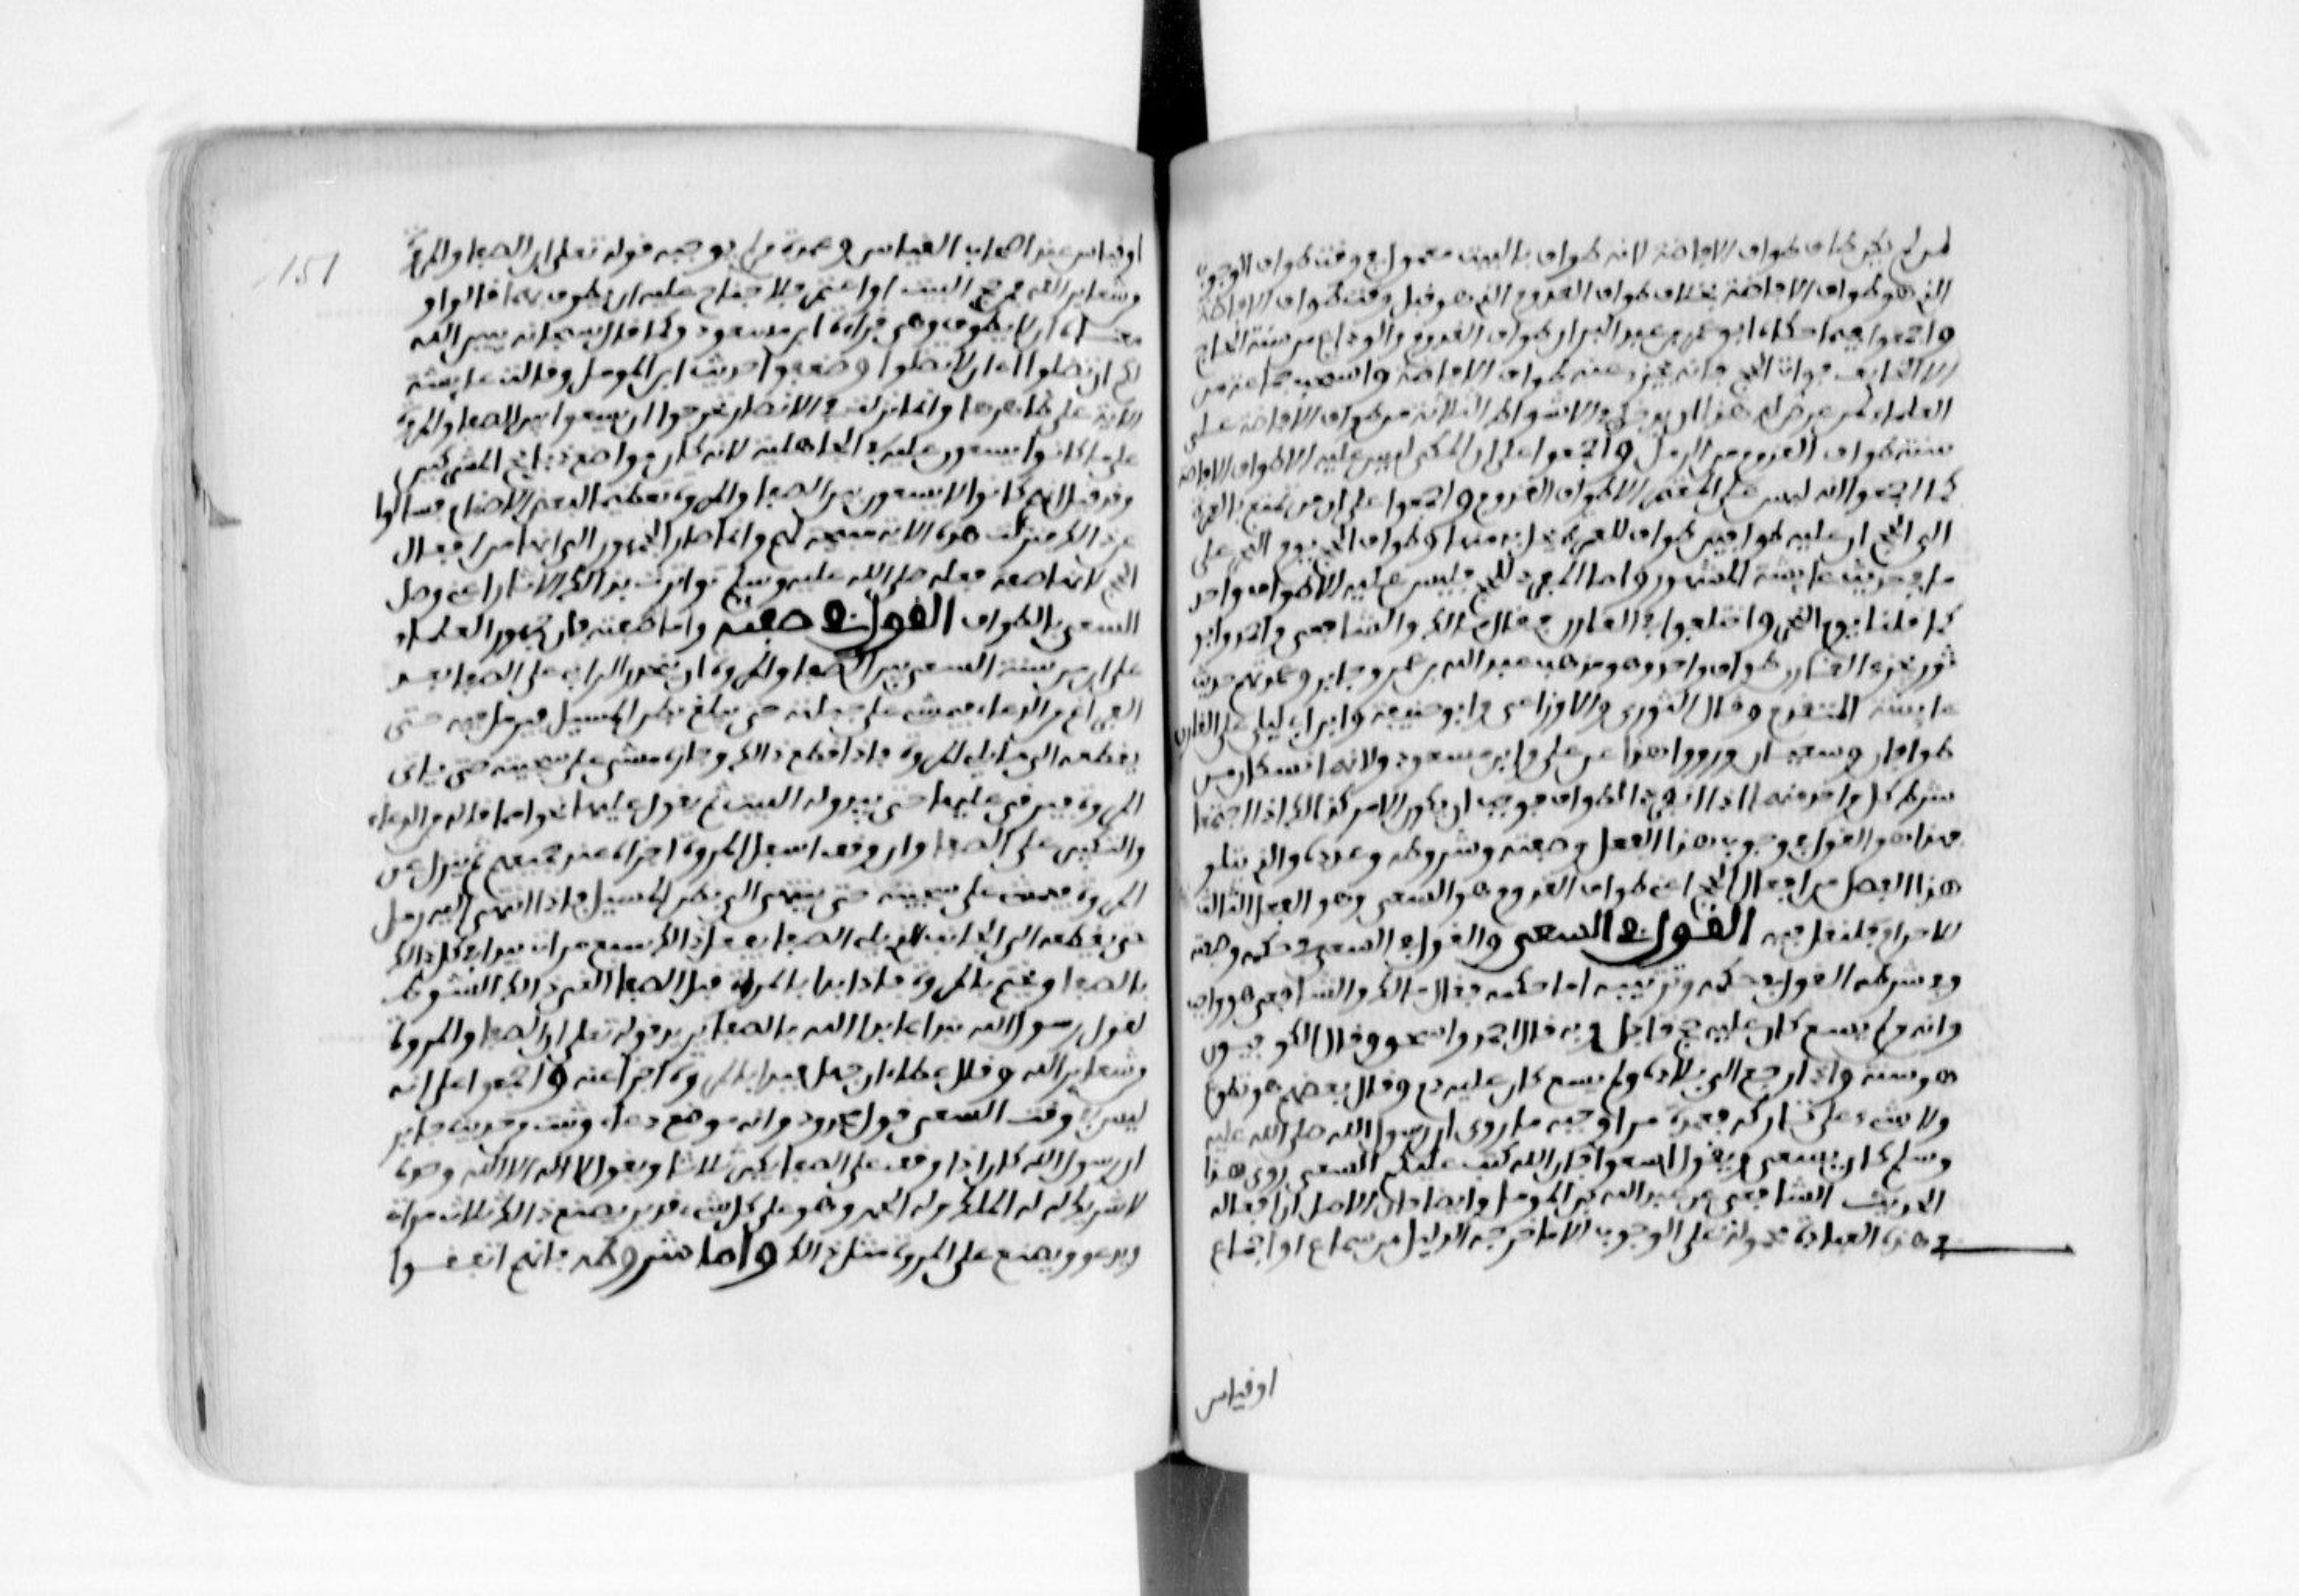 لمن لم يكن طاف طواف الافاضة لانه طواف بالبيت معمول في وقت طواف الوجوب
الذي هو طواف الافاضة بخلاف طواف القدوم الذي هو قبل وقت طواف الافاضة
واجمعوا فيما حكاه ابو عمر بن عبد البر ان طواف القدوم والوداع من سنة الحاج
الا لخايف فوات الحج فانه يجزء عنه طواف الافاضة واستحب جماعة من
العلماء لمن عرض له هذا ان يرمل في الاشواط الثلاثة من طواف الافاضة على
سنة طواف القدوم من الرمل واجمعوا على ان المكي ليس عليه الا طواف الافاضة
كما اجمعوا انه ليس على المعتمر الا طواف القدوم واجمعوا على ان من تمتع بالعمرة
الى الحج ان عليه طوافين طواف للعمرة لحله منها وطواف للحج يوم النحر على
ما في حديث عايشة المشهور واما المفرد للحج فليس عليه الا طواف واحد
كما قلنا يوم النحر واختلفوا في القارن فقال مالك والشافعي واحمد وابو
ثور يجزء القارن طواف واحد وهو مذهب عبد الله بن عمر وجابر وعمدتهم حديث
عايشة المتقدم وقال الثوري والاوزاعي وابو حنيفة وابن ابي ليلى على القارن
طوافان وسعيان ورووا هذا عن علي وابن مسعود ولانهما نسكان من
شرط كل واحد منهما اذا انفرد الطواف فوجب ان يكون الامر كذالك اذا اجتمعا
فهذا هو القول في وجوب هذا الفعل وصفته وشروطه وعدده والذي يتلو
هذا الفعل من افعال الحج اعني طواف القدوم هو السعي وهو الفعل الثالث
للاحرام فلنقل فيه القول في السعي والقول في السعي في حكمه وصفته
وفي شرطه القول في حكمه وترتيبه اما حكمه فقال مالك والشافعي هو واجب
وانه ولم يسع كان عليه حج قابل وبه قال احمد واسحق وقال الكوفيون
هو سنة واذا رجع الى بلاده ولم يسع كان عليه دم وقال بعضهم هو تطوع
ولا شيء على تاركه فعمدة من اوجبه ما روي ان رسول الله صلى الله عليه
وسلم كان يسعى ويقول اسعوا فان الله كتب عليكم السعي روى هذا
الحديث الشافعي عن عبد الله بن المومل وايضا فان الاصل ان افعاله
في هذه العبادة محمولة على الوجوب الا ما خرجه الدليل من سماع او اجماع
او قياس
151
او قياس عند اصحاب القياس وعمدة من لم يوجبه قوله تعلى ان الصفا والمروة
من شعاير الله فمن حج البيت او اعتمر فلا جناح عليه ان يطوف بهما قالوا و
معناه ان لا يطوف وهي قراءة ابن مسعود وكما قال سبحانه يبين الله
لكم ان تضلوا اي ان لا تضلوا وضعفوا حديث ابن المومل وقالت عايشة
الاية على ظاهرها وانما نزلت في الانصار تحرجوا ان يسعوا بين الصفا والمروة
على ما كانوا يسعون عليه في الجاهلية لانه كان موضع ذبايح المشركين
وقد قيل انهم كانوا لا يسعون بين الصفا والمروة تعظيما لبعض الاصنام فسالوا
عن ذالك فنزلت هذه الاية مبيحة لهم وانما صار الجمهور الى انها من افعال
الحج لانها صفة فعله صلى الله عليه وسلم تواترت بذالك الاثار اعني وصل
السعي بالطواف القول في صفته واما صفته فان جمهور العلماء
على ان من سنة السعي بين الصفا والمروة ان ينحدر الراقي على الصفا بعد
الفراغ من الدعاء فيمشي على جبلته حتى يبلغ بطن المسيل فيرمل فيه حتى
يقطعه الى ما يلي المروة فاذا قطع ذالك وجازه مشى على سجيته حتى ياتي
المروة فيرقى عليها حتى يبدو له البيت ثم يقول عليها نحو ما قاله من الدعاء
والتكبير على الصفا وان وقف اسفل المروة اجزاه عند جميعهم ثم ينزل عن
المروة فيمشي على سجيته حتى ينتهي الى بطن المسيل فاذا انتهى اليه رمل
حتى يقطعه الى الجانب الذي يلي الصفا يفعل ذالك سبع مرات يبدا في كل ذالك
بالصفا ويختم بالمروة فان بدا بالمروة قبل الصفا الغي ذالك الشوط
لقول رسول الله نبدا بما بدا الله بالصفا يريد قوله تعلى ان الصفا والمروة
من شعاير الله وقال عطاء ان جهل فبدا بالمروة اجزا عنه واجمعوا على انه
ليس في وقت السعي قول محدود وانه موضع دعاء وثبت من حديث جابر
ان رسول الله كان اذا وقف على الصفا يكبر ثلاثا ويقول لا اله الا الله وحده
لا شريك له له الملك وله الحمد وهو على كل شيء قدير يصنع ذالك ثلاث مرات
ويدعو ويصنع على المروة مثل ذالك واما شروطه فانهم اتفقوا